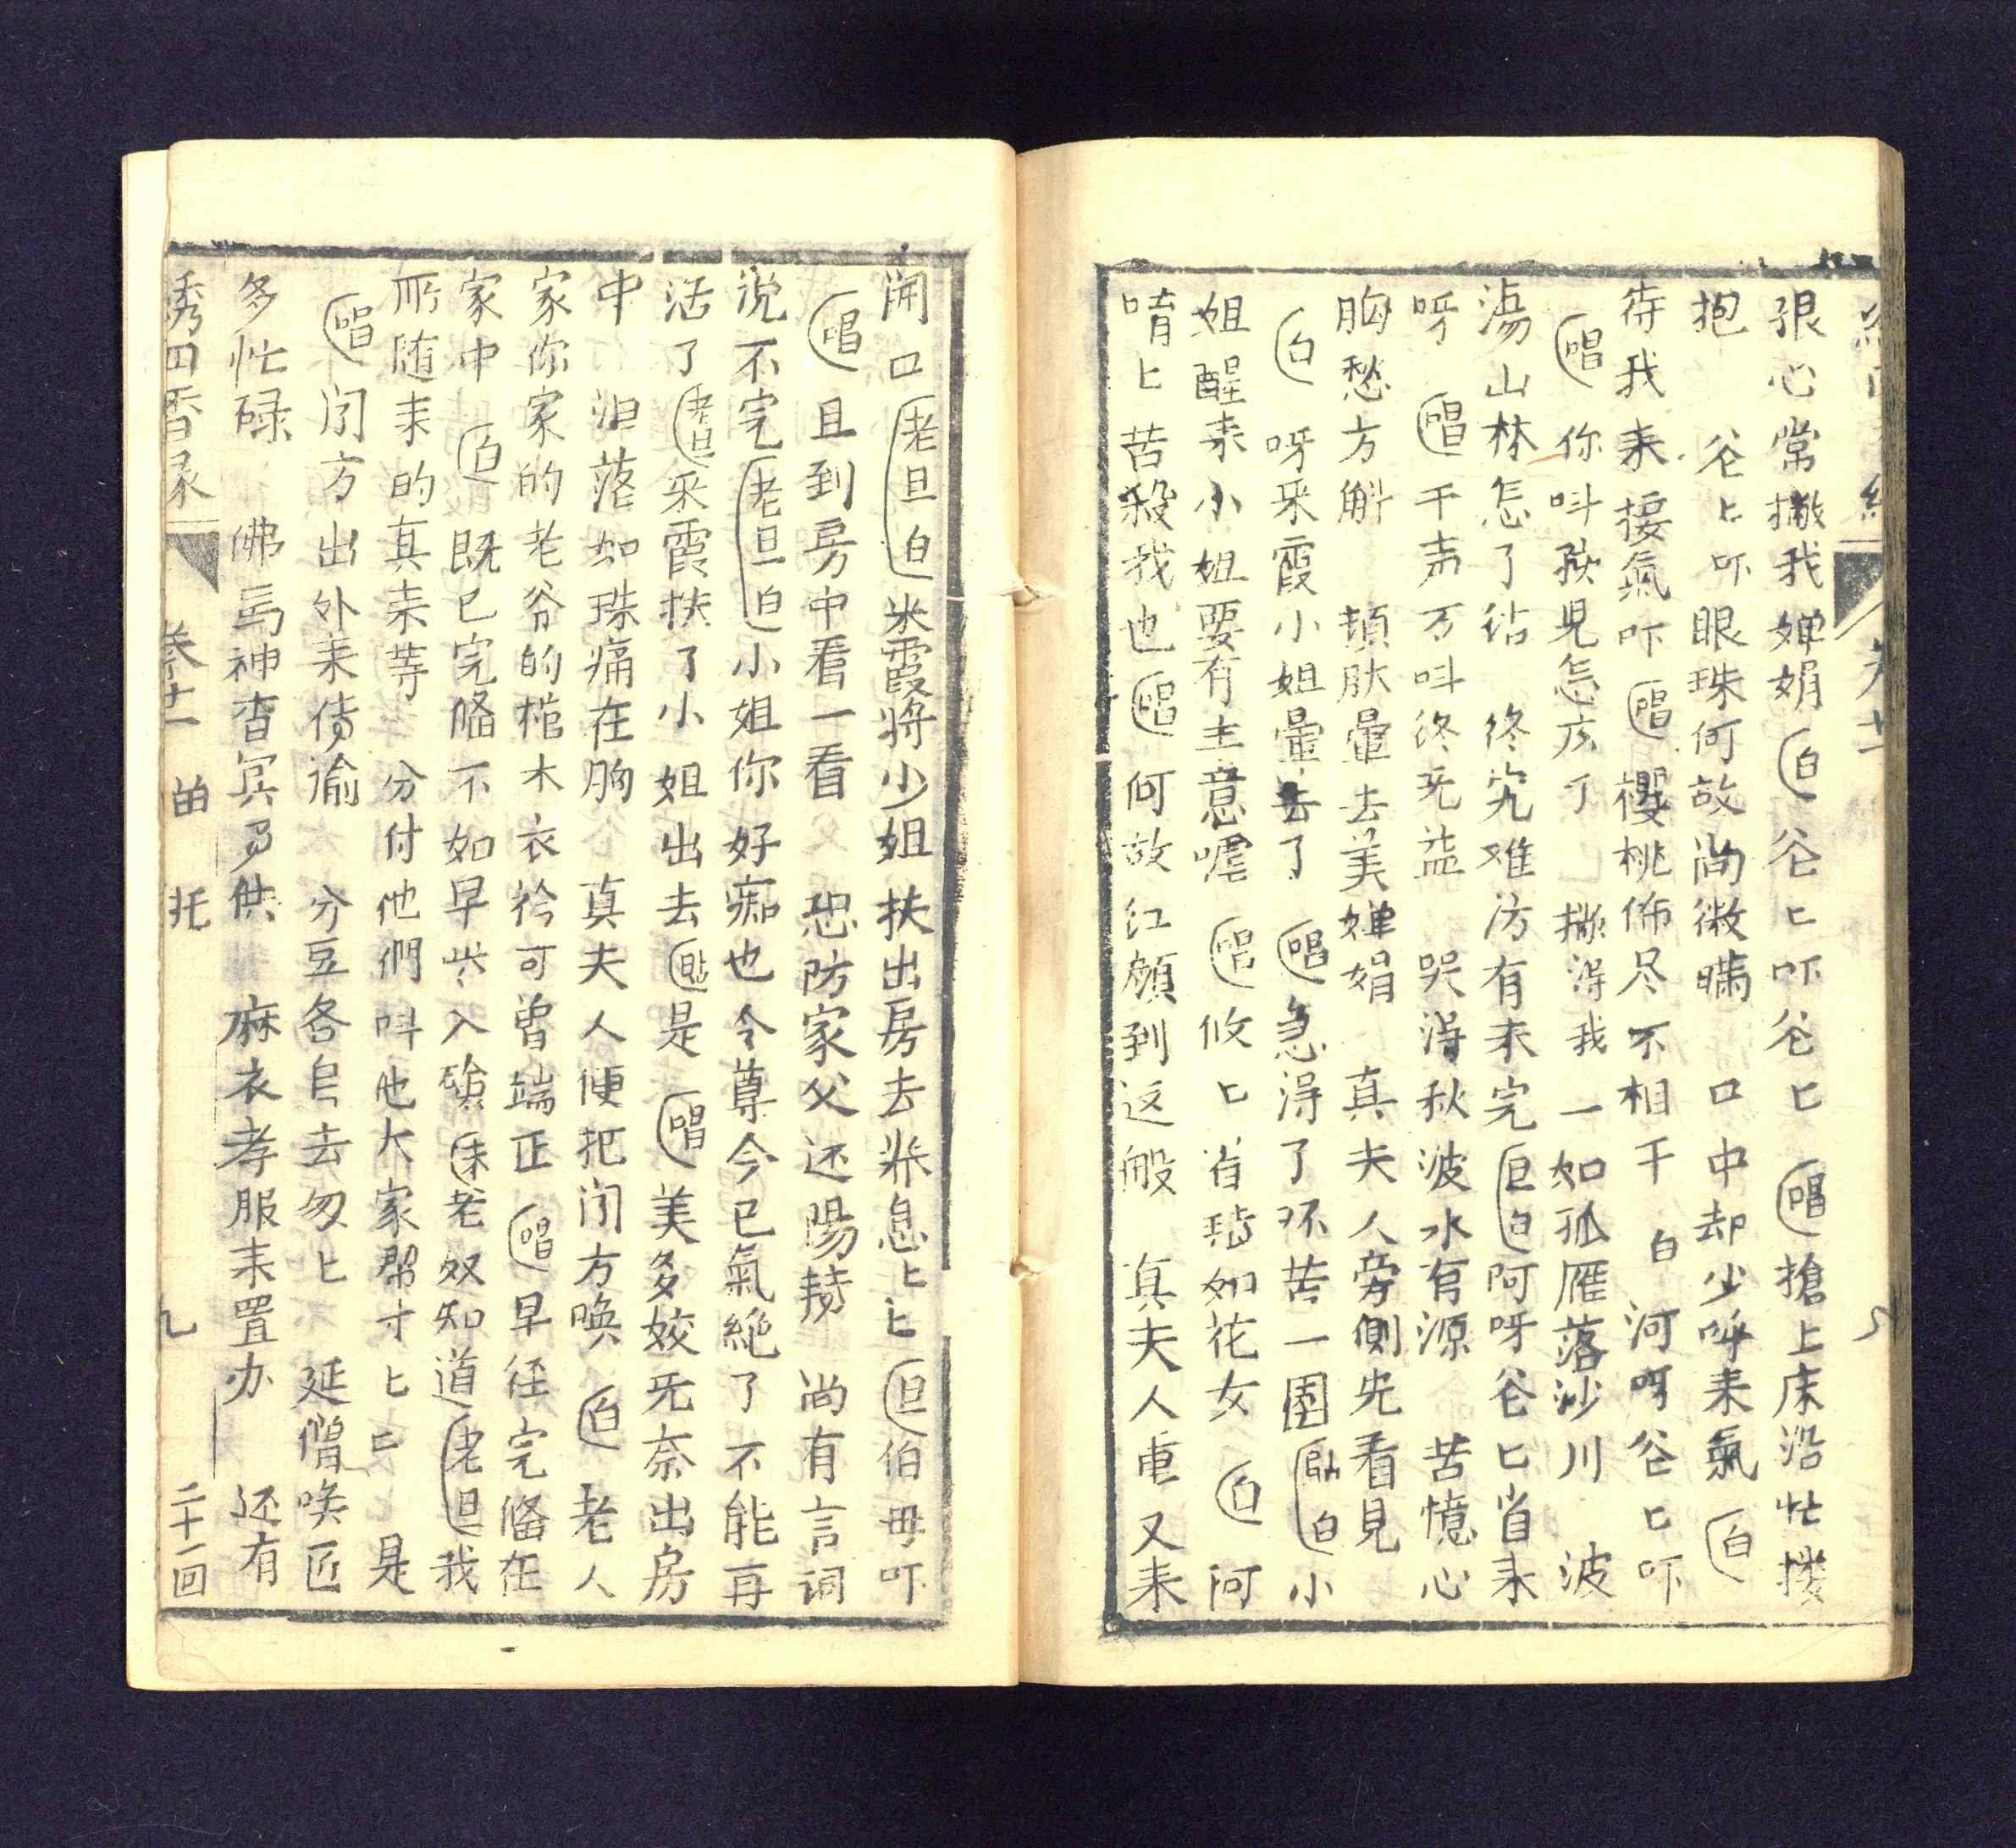 狠心常撇我婵娟 白 爷匕吓爷匕 唱 搶上床沿忙摟
抱 爷上吓眼珠何故尚微瞒 口中却少呼来氣 白
待我来接氣吓 唱 櫻桃佈尽不相干 白 河呀爷匕吓
唱 你呌孩児怎広了 撇淂我一如孤雁落沙川 波
濤山林怎了结 终究难汸有未完 旦白 阿呀爷匕省来
呀 唱 千声万呌终旡益 哭淂秋波水有源 苦憶心
胸愁方斛 頼肰暈去美婵娟 真夫人旁側先看見
白 呀采霞小姐暈去了 唱 急淂了环苦一團 貼白 小
姐醒来小姐要有主意嚯 唱 攸匕省转如花女 白 阿
唷匕苦殺我也 唱 何故红顔到这般 真夫人重又来
開口 老旦白 采霞将少姐扶出房去将息匕匕 旦 伯毋吓
唱 且到房中看一看 恐防家父还陽转 尚有言词
说不完 老旦白 小姐你好痴也令尊今已氣絶了不能再
活了 老旦 采霞扶了小姐出去 貼 是 唱 美多姣旡奈出房
中 泪落如珠痛在胸 真夫人便把门方唤 白 老人
家你家的老爷的棺木衣衿可曾端正 唱 早徃完俻在
家中 白 既已完俻不如早些入殮 末 老奴知道 老旦 我
所随来的真来等 分付他們呌他大家帮寸匕匕 是
唱 门方出外来債谕 分豆各自去匆匕 延僧唤匠
多忙碌 佛馬神杳宾多供 麻衣孝服来置办 还有
綉四香录 卷十一 由 托 九 二十一回